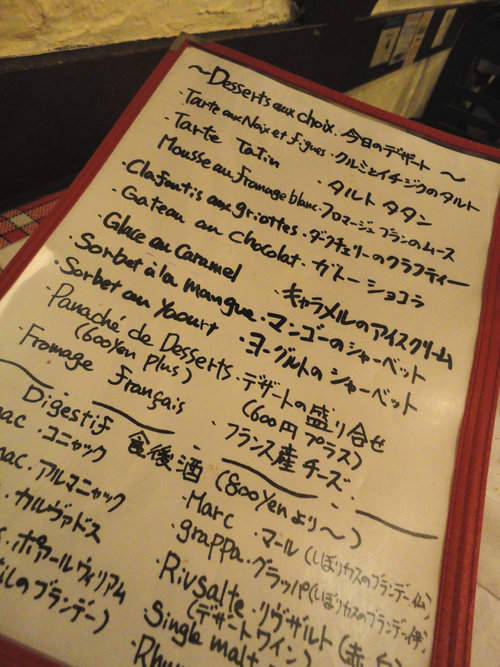 ～Desserts aux choix. 今日のデザート ～
・Tarte aux Noix et figues・クルミとイチジクのタルト
・Tarte Tatin ・タルト タタン
Mousse au fromage blanc・フロマージュブランのムース
・Clafoutis aux griottes・ダークチェリーのクラフティー
・Gateau au chocolat・ガトー ショコラ
・Glace au Caramel ・キャラメルのアイスクリーム
・Sorbet à la mangue・マンゴーのシャーベット
・Sorbet au Yaourt ・ヨーグルトのシャーベット
・Panaché de Desserts・デザートの盛り合せ
(600yen plus) (600円プラス)
・Fromage Français ・フランス産チーズ・
Digestif 食後酒 (800yenより～)
nac・コニャック
nac・アルマニャック
・カルヴァドス
・ポアールヴィリアム
のブランデー)
・Marc ・マール(しぼりカスのブランデー
・grappa・グラッパ(しぼりカスのブランデー
・Rivsalte・リヴザルト(赤
(デザートワイン)
Single malt
Rhum